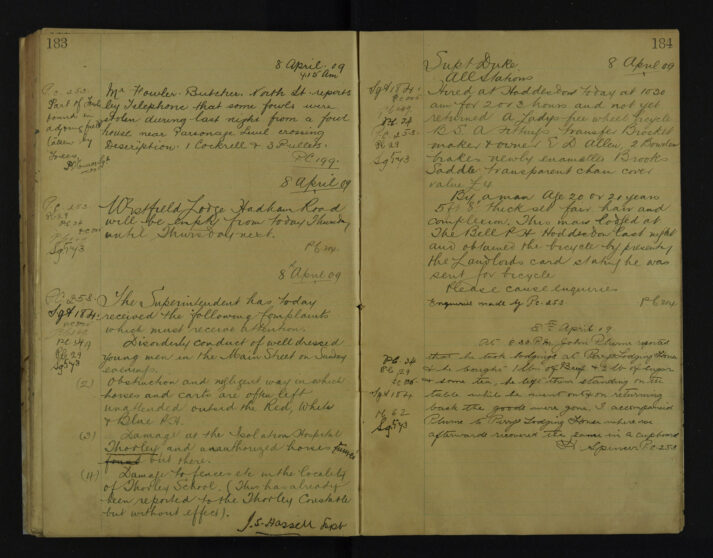 183
8 April. 09
4.15 am
Mr Fowler. Butcher. North St. reports
by Telephone that some fowls were
stolen during last night from a fowl
house near Parsonage Level crossing
Description. 1 Cockrell & 3 Pullets.
PC 199.
Pc 253
Part of
found in
adjoining field
taken by
Foxes
8 April 09
Westfield Lodge Hadham Road
will be empty from today Thursday
until Thursday next.
Pc 253
PC 29
Sgt 543
8 April 09
The Superintendent has today
received the following Complaints
which must receive attention.
Disorderly conduct of well dressed
young men in the Main Street on Sunday
evenings.
(2) Obstruction and negligent way in which
horses and carts are often left
unattended outside the Red, White
& Blue P.H.
(3) Damage at the Isolation Hospital
Thorley and unauthorized horses turned
out there.
(4) Damage to fences etc in the locality
of Thorley School. (This has already
been reported to the Thorley Constable
but without effect).
J. S. Hassell Supt
PC 258.
Sgt 184.
PC 29
Sgt 543
184
Supt Duke. 8 April 09
All Stations
Hired at Hoddesdon today at 10.30
am for 2 or 3 hours and not yet
returned A Ladys free wheel cycle
B.S.A. fittings transfer Brocket
maker & owner E. D. Allen, 2 Bowden
brakes newly enamelled Brooks
Saddle transparent chain cover
value £4
By a man Age 20 or 21 years
5ft 8 thick set fair hair and
complexion, This man lodged at
The Bell P.H. Hoddesdon last night
and obtained the bicycle by presenting
the Landlords card stating he was
sent for bicycle
Please cause enquiries
Enquiries made by Pc. 253
Sgt 184.
PC 24
PC 253.
PC 29
Sgt 543
8th April 09
At 8.30 P.M. John reported
that he took lodgings at Lodging House
& he bought 1 lb of Beef & 2 lb of sugar
& some tea, he left them standing on the
table while he went out & on returning
back the goods were gone. I accompanied
to Lodging House where we
afterwards recovered the same in a cupboard
Spencer Pc 253
PC 24
PC 29
Sgt 184
PC 62
Sgt 543